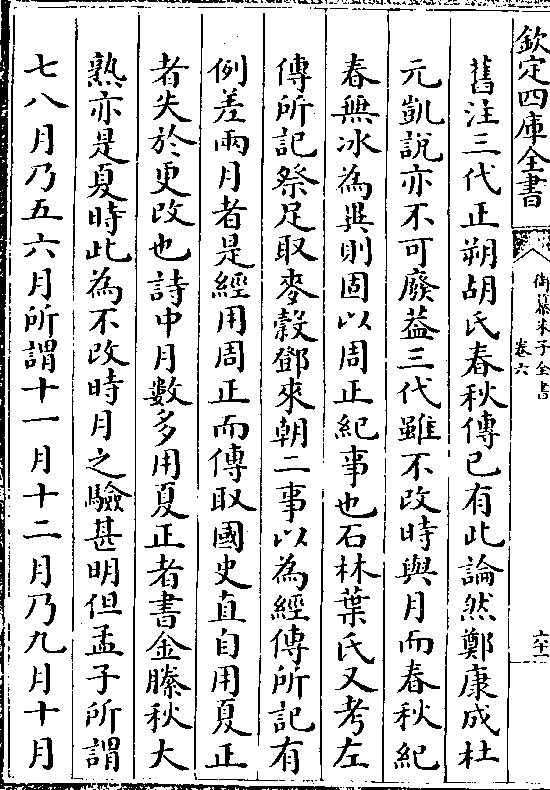 欽定四庫全書
御纂朱子全書
卷六
六十一
舊注三代正朔胡氏春秋傳已有此論然鄭康成杜
元凱說亦不可廢蓋三代雖不改時與月而春秋紀
春無冰為異則固以周正紀事也石林葉氏又考左
傳所記祭足取麥穀鄧來朝二事以為經傳所記有
例差兩月者是經用周正而傳取國史直自用夏正
者失於更改也詩中月數多用夏正者書金縢秋大
熟亦是夏時此為不改時月之驗甚明但孟子所謂
七八月乃五六月所謂十一月十二月乃九月十月